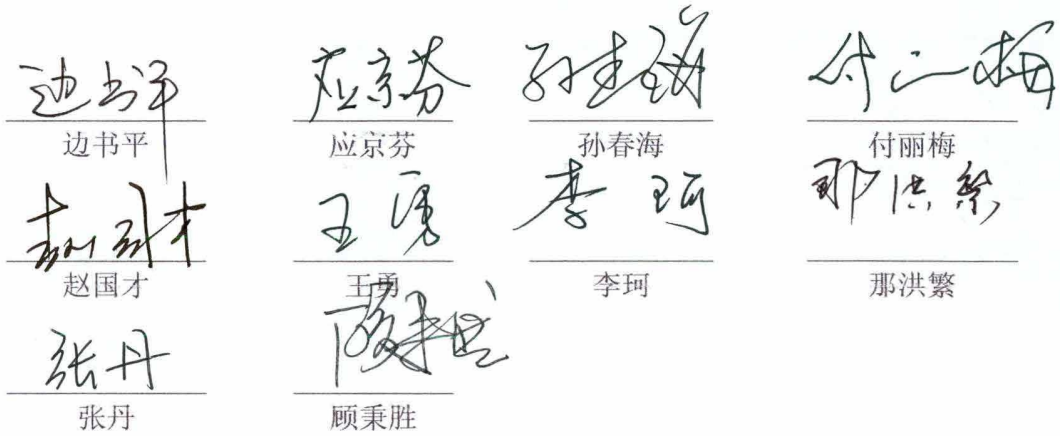 边书平 应京芬 孙春海 付丽梅
边书平 应京芬 孙春海 付丽梅
赵国才 王勇 李珂 那洪繁
赵国才 王勇 李珂 那洪繁
张丹 顾秉胜
张丹 顾秉胜